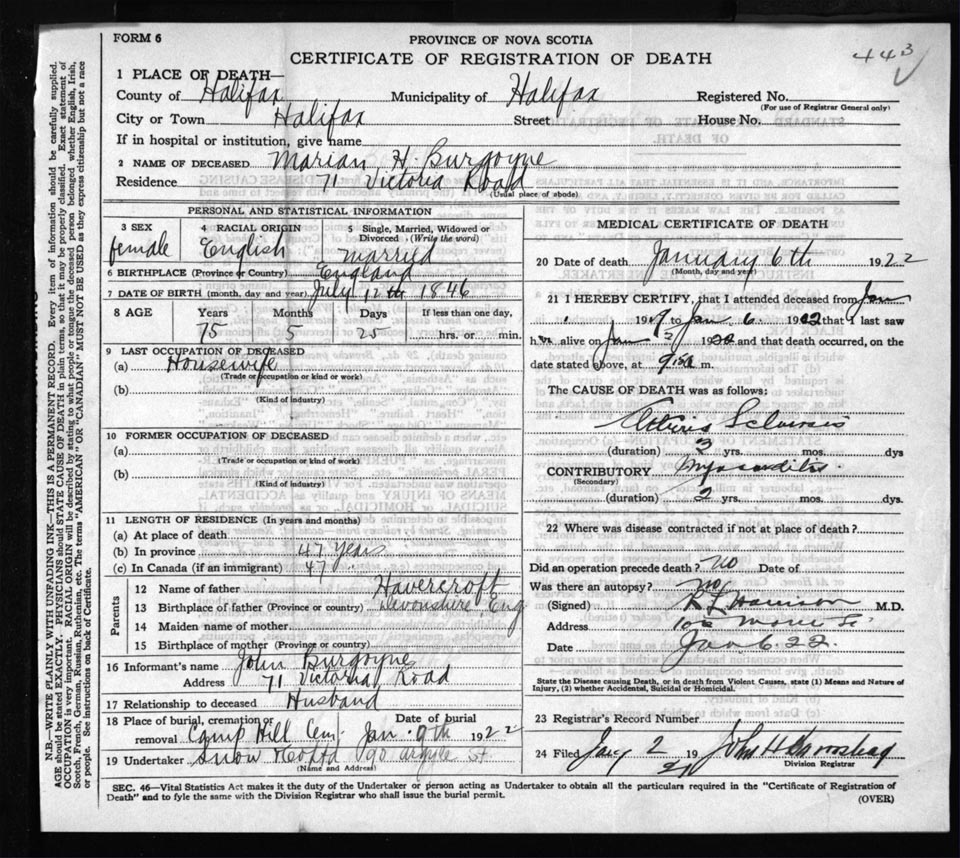 FORM 6
PROVINCE OF NOVA SCOTIA
CERTIFICATE OF REGISTRATION OF DEATH
443
1 PLACE OF DEATH—
County of Halifax Municipality of Halifax Registered No.
(For use of Registrar General only)
City or Town Halifax Street House No.
If in hospital or institution, give name
2 NAME OF DECEASED Marian H. Burgoyne
Residence 71 Victoria Road
(Usual place of abode)
PERSONAL AND STATISTICAL INFORMATION
3 SEX 4 RACIAL ORIGIN 5 Single, Married, Widowed or
Divorced (Write the word)
female English married
6 BIRTHPLACE (Province or Country) England
7 DATE OF BIRTH (month, day and year) July 12th 1846
8 AGE Years Months Days If less than one day,
75 5 25 hrs. or min.
9 LAST OCCUPATION OF DECEASED
(a) Housewife
(Trade or occupation or kind or work)
(b)
(Kind of industry)
10 FORMER OCCUPATION OF DECEASED
(a)
(Trade or occupation or kind of work)
(b)
(Kind of industry)
11 LENGTH OF RESIDENCE (In years and months)
(a) At place of death
(b) In province 47 years
(c) In Canada (if an immigrant) 47
Parents
12 Name of father Havercroft
13 Birthplace of father (Province or country) Devonshire Eng
14 Maiden name of mother
15 Birthplace of mother (Province or country)
16 Informant's name John Burgoyne
Address 71 Victoria Road
17 Relationship to deceased Husband
18 Place of burial, cremation or Date of burial
removal Camp Hill Cem. Jan. 9th 1922
19 Undertaker Snow & Co Ltd 90 Argyle St.
(Name and Address)
MEDICAL CERTIFICATE OF DEATH
20 Date of death January 6th 1922
(Month, day and year)
21 I HEREBY CERTIFY, that I attended deceased from Jan
1919 to Jan 6. 1922 that I last saw
her alive on Jan 19 and that death occurred, on the
date stated above, at m.
The CAUSE OF DEATH was as follows:
(duration) 3 yrs. mos. dys
CONTRIBUTORY Myocarditis.
(Secondary)
(duration) 2 yrs. mos. dys.
22 Where was disease contracted if not at place of death?
Did an operation precede death? no Date of
Was there an autopsy? no
(Signed) M.D.
Address
Date Jan 6. 22.
State the Disease causing Death, or in death from Violent Causes, state (1) Means and Nature of
Injury, (2) whether Accidental, Suicidal or Homicidal.
23 Registrar's Record Number
24 Filed 19
Division Registrar
SEC. 46—Vital Statistics Act makes it the duty of the Undertaker or person acting as Undertaker to obtain all the particulars required in the "Certificate of Registration of
Death" and to fyle the same with the Division Registrar who shall issue the burial permit.
(OVER)
N.B.—WRITE PLAINLY WITH UNFADING INK—THIS IS A PERMANENT RECORD. Every item of information should be carefully supplied.
AGE should be stated EXACTLY. PHYSICIANS should STATE CAUSE OF DEATH in plain terms, so that it may be properly classified. Exact statement of
OCCUPATION is very important. RACIAL ORIGIN will be described by stating to what people or tongue the deceased person belonged whether English, Irish,
Scotch, French, German, Russian, Ruthenian, etc. The terms "AMERICAN" OR "CANADIAN" MUST NOT BE USED as they express citizenship but not a race
or people. See instructions on back of Certificate.